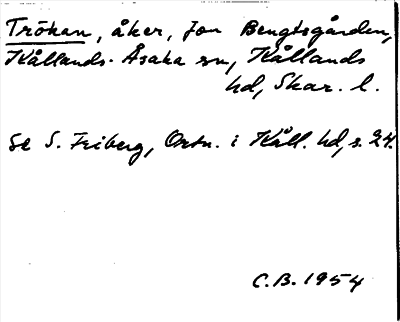 Trökan, åker, Jon Bengtsgården,
Kållands-Åsaka sn, Kållands
hd, Skar. l.
Se S. Friberg, Ortn. i Kåll. hd, s. 24.
C.B. 1954